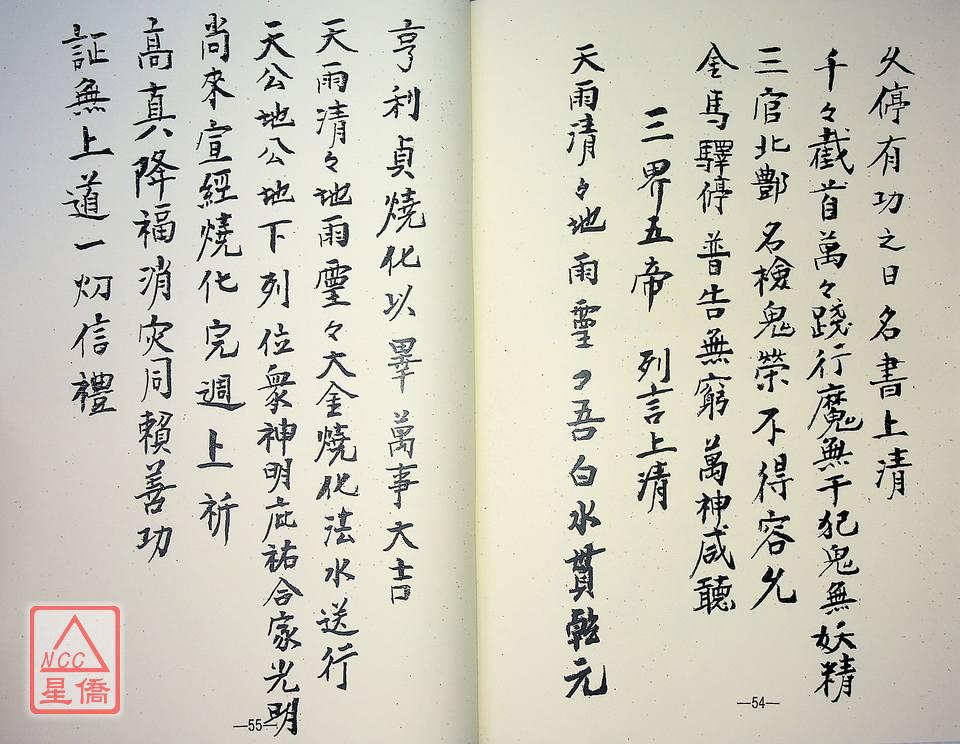 久停有功之日名書上清
千々截首萬々踐行魔無干犯鬼無妖精
三官北酆名檢鬼榮不得容允
金馬驛停普告無窮萬神咸聽
三界五帝 列言上清
天雨清々地雨靈々吾白水貫乾元
—54—
亨利貞燒化以畢萬事大吉
天雨清々地雨靈々大金燒化法水送行
天公地公地下列位眾神明庇祐合家光明
尚來宣經燒化完週上祈
高真降福消灾同賴善功
証無上道一炁信禮
—55—
NCC
星僑